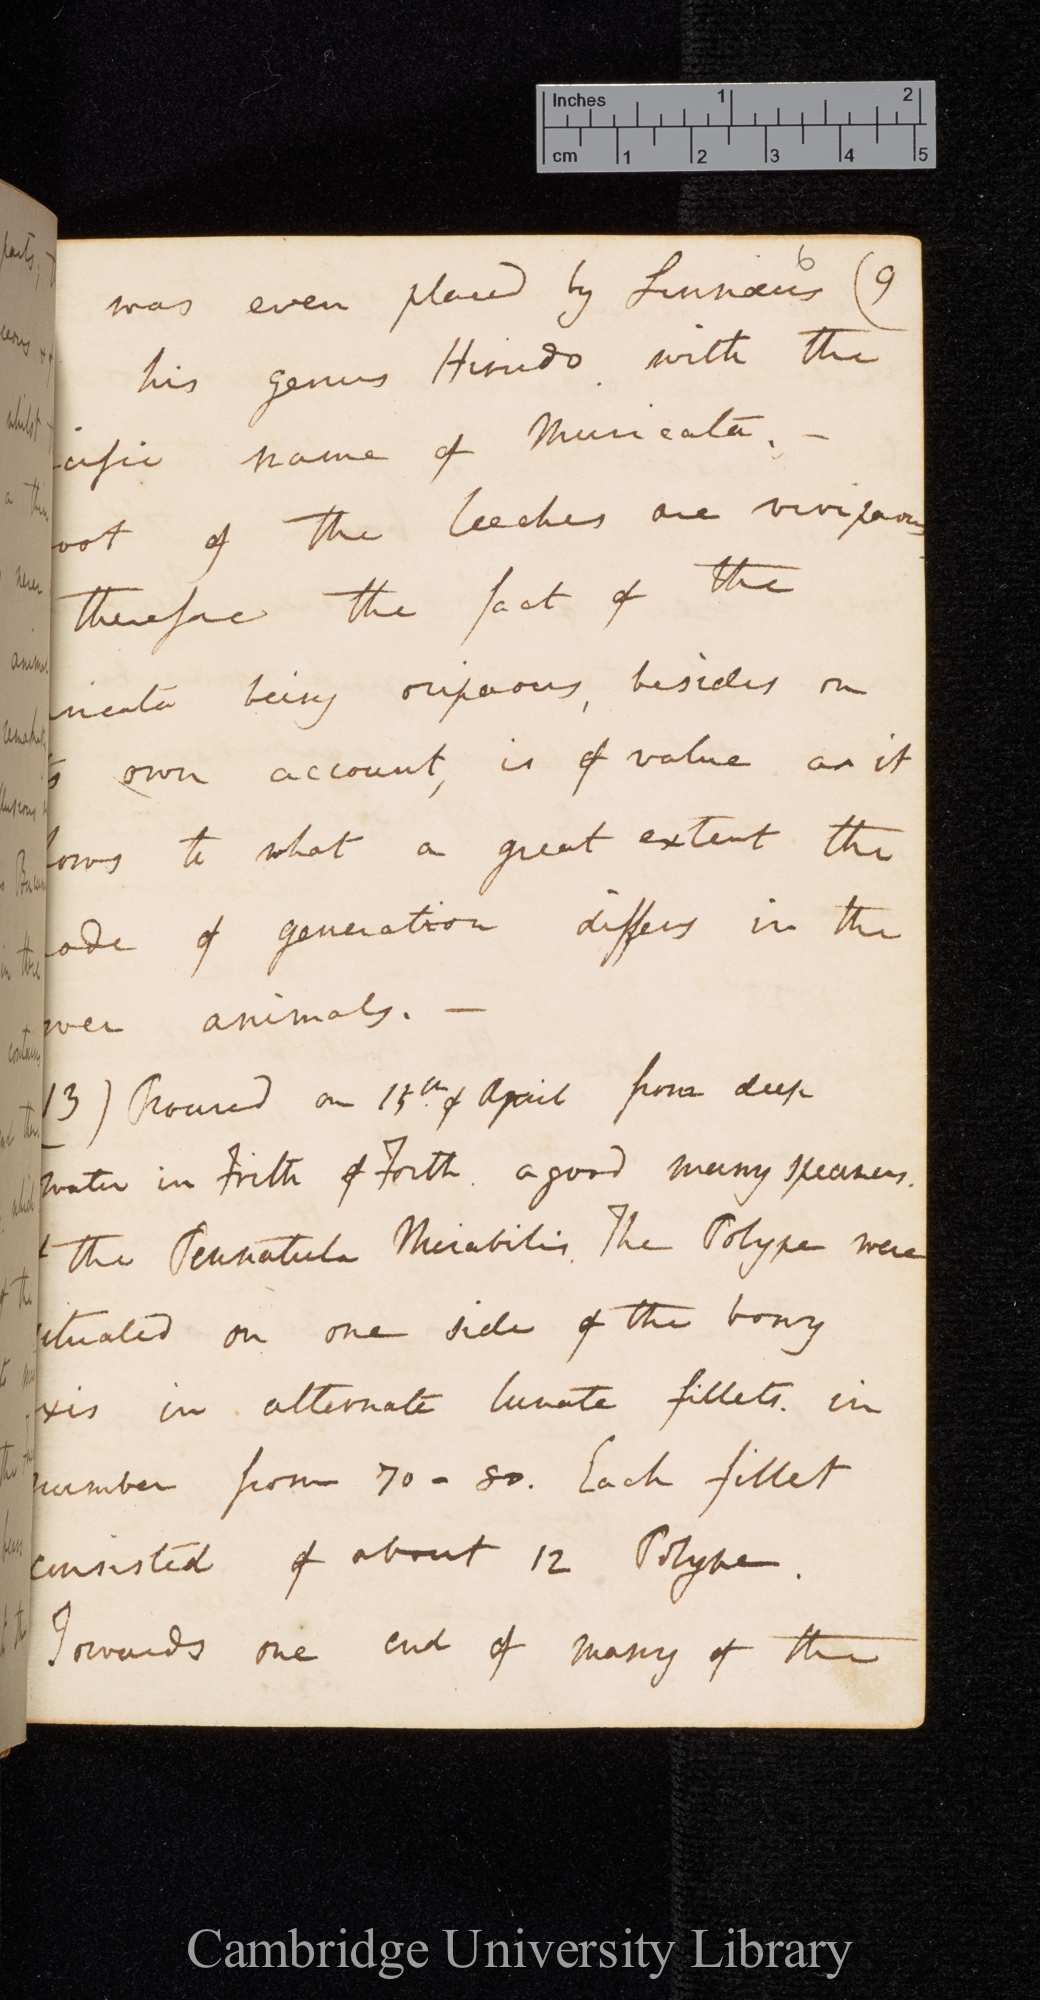 Inches 1 2
cm 1 2 3 4 5
6 (9
was even placed by Linnæus
his genus Hirudo. with the
cific name of Muricata. —
oot of the leeches are viviparous
therefore the fact of the
ricata being oviparous, besides on
ts own account, is of value as it
hows to what a great extent the
ode of generation differs in the
wer animals. —
13) Procured on 15th of April from deep
water in Frith of Forth. a good many specimens.
f the Pennatula Mirabilis. The Polype were
situated on one side of the bony
xis in alternate lunate fillets. in
number from 70 - 80. Each fillet
consisted of about 12 Polype.
Towards one end of many of the
Cambridge University Library